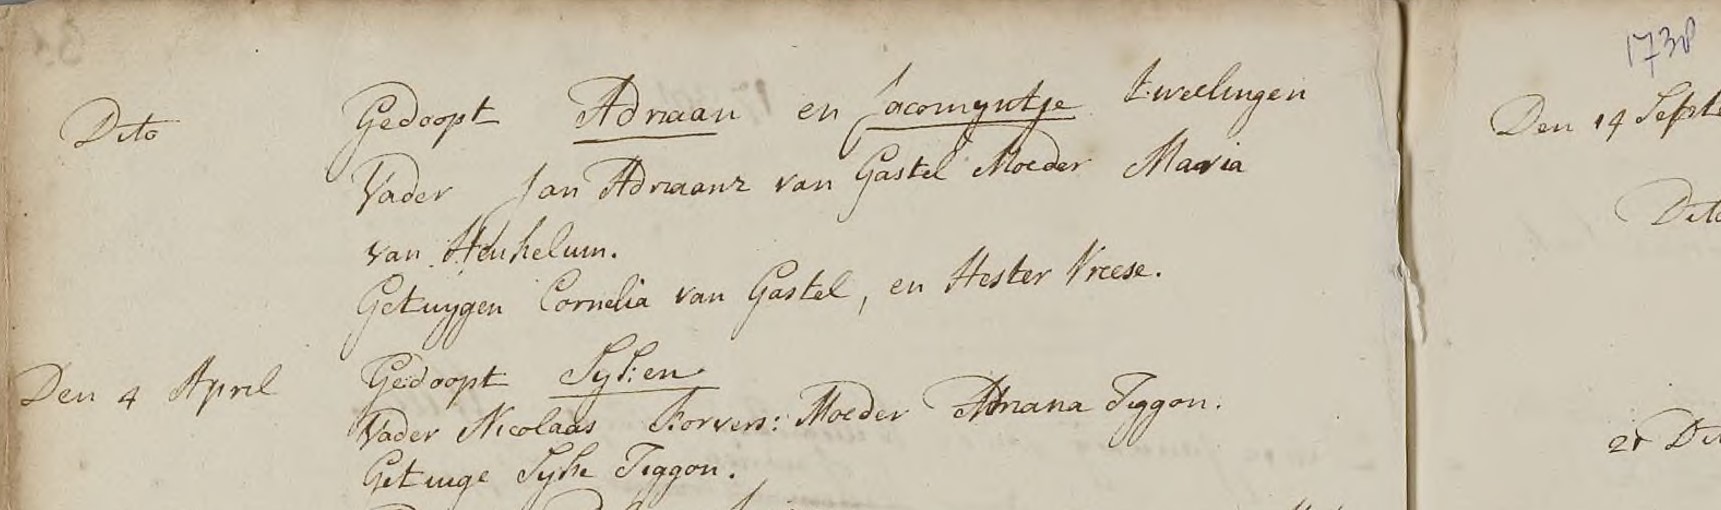 Dito Gedoopt Adriaan en Jacomyntje tweelingen
Vader Jan Adriaanz van Gastel Moeder Maria
van Heukelum.
Getuygen Cornelia van Gastel, en Hester Vreese.
Den 4 April Gedoopt Sijken
Vader Nicolaas Korvers: Moeder Adriana Tiggon.
Getuige Sijke Tiggon.
1738
Den 14 Septe
Dito
21 Di